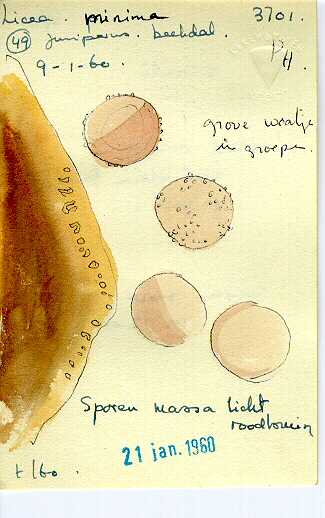 Licea. minima 3701.
49 Juniperus. beekdal. PH.
9-1-60.
grove wratjes
in groepen.
Sporen massa licht
roodbruin
21 jan. 1960
t/60.